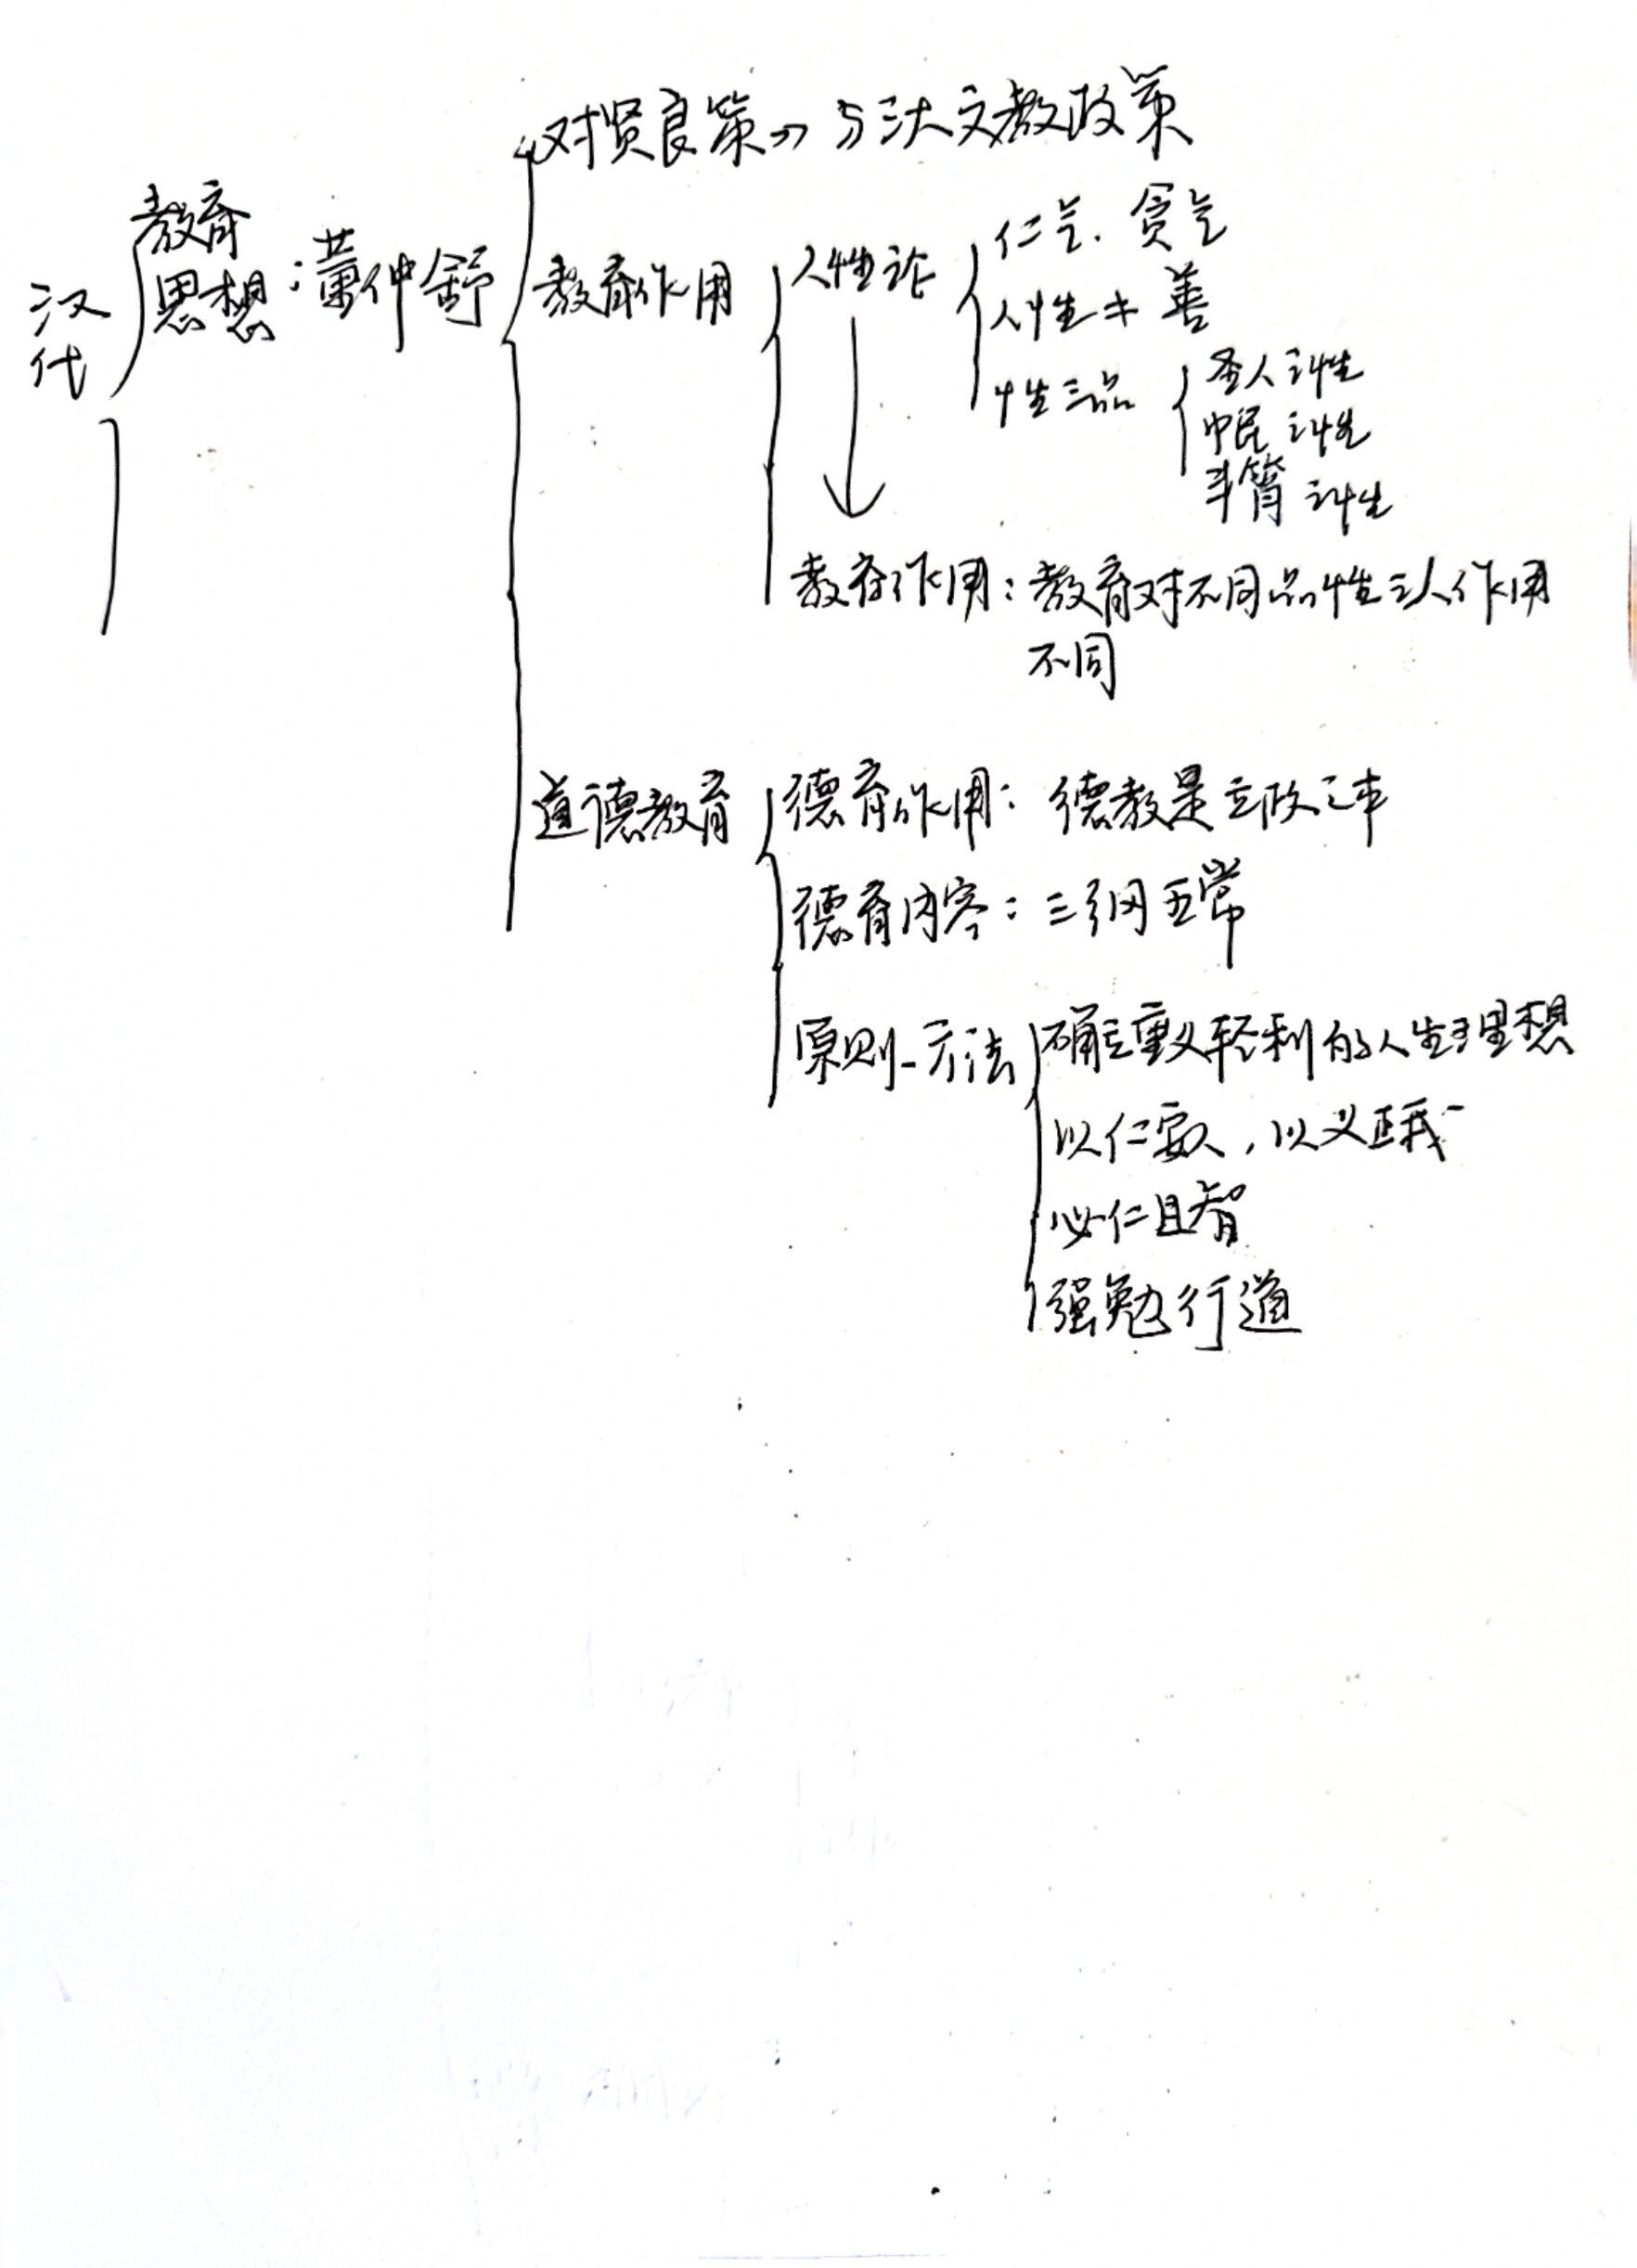 《对贤良策》与汉文教政策
汉代
教育思想：董仲舒
教育作用
人性论
仁气、贪气
人性 善
性三品
圣人之性
中民之性
斗筲之性
教育作用：教育对不同品性之人作用
不同
道德教育
德育作用：德教是立政之本
德育内容：三纲五常
原则 方法
确立重义轻利的人生理想
以仁安人，以义正我
必仁且智
强勉行道